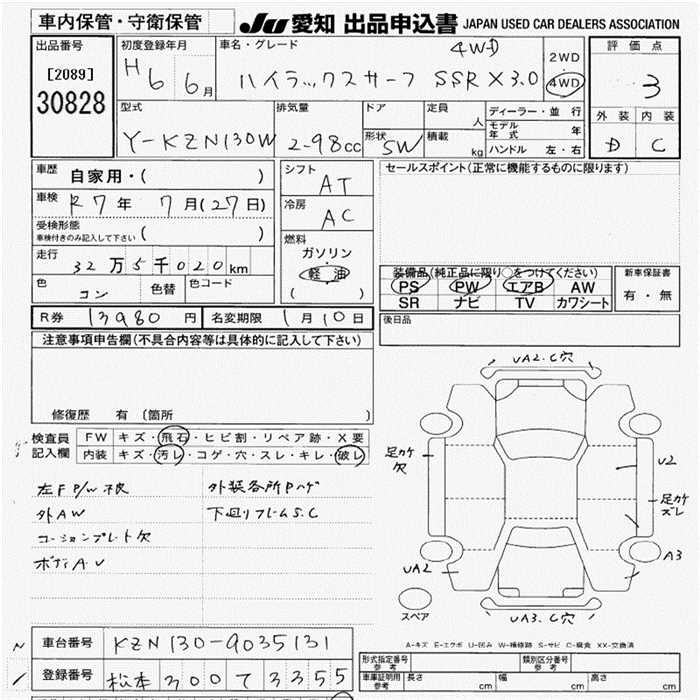 車内保管・守衛保管 JU 愛知 出品申込書 JAPAN USED CAR DEALERS ASSOCIATION
出品番号
[2089]
30828
初度登録年月
H6 6月
車名・グレード
4WD
ハイラックスサーフ SSR X 3.0
2WD
4WD
評価点
3
外装 内装
D C
型式
Y-KZN130W
排気量
2-98cc
ドア
形状
SW
定員
人
積載
kg
ディーラー・並行
モデル年式 年
ハンドル 左・右
車歴 自家用・( )
車検 R7年 7月(27日)
受検形態
車検付きのみ記入して下さい ( )
走行 32万5千020km
色 コン 色替 色コード
シフト
AT
冷房
AC
燃料
ガソリン
・
軽油
( )
セールスポイント(正常に機能するものに限ります)
装備品(純正品に限り○をつけてください)
PS PW エアB AW
SR ナビ TV カワシート
新車保証書
有・無
R券 13980円 名変期限 1月10日
後日品
注意事項申告欄(不具合内容等は具体的に記入して下さい)
修復歴 有 〔箇所 〕
検査員
記入欄
FW キズ・飛石・ヒビ割・リペア跡・X要
内装 キズ・汚レ・コゲ・穴・スレ・キレ・破レ
左F P/W不良 外装各所Pハゲ
外AW 下回リフレームS.C
コーションプレート欠
ボディAU
UA2.C穴
足カケ
欠
U2
足カケ
ズレ
UA2
A3
スペア
UA3.C穴
A-キズ E-エクボ U-凹み W-補修跡 S-サビ C-腐食 XX-交換済
車台番号 KZN130-9035131
登録番号 松本300て3355
形式指定番号
参考
類別区分番号
参考
車庫証明用
参考
長さ cm 幅 cm 高さ cm